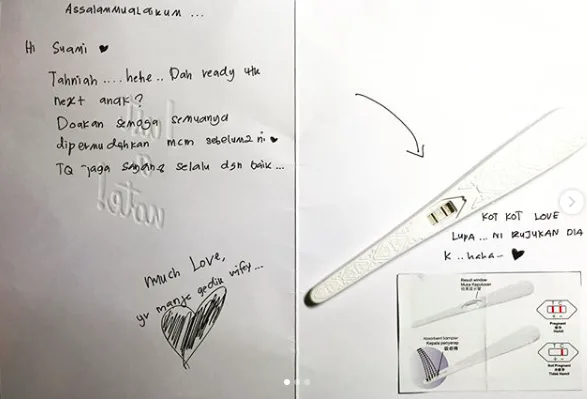 Assalammualaikum ...
Hi Suami ♥
Tahniah .... hehe.. Dah ready utk
next anak?
Doakan semoga semuanya
dipermudahkan mcm sebelum2 ni ♥
TQ jaga sayang selalu dgn baik ...
Much Love,
yr manje gedik wifey...
KOT KOT LOVE
LUPA ... NI RUJUKAN DIA
K .. haha~ ♥
Result window
Absorbent sampler
Kepala penyerap
Pregnant
Hamil
Not Pregnant
Tidak Hamil